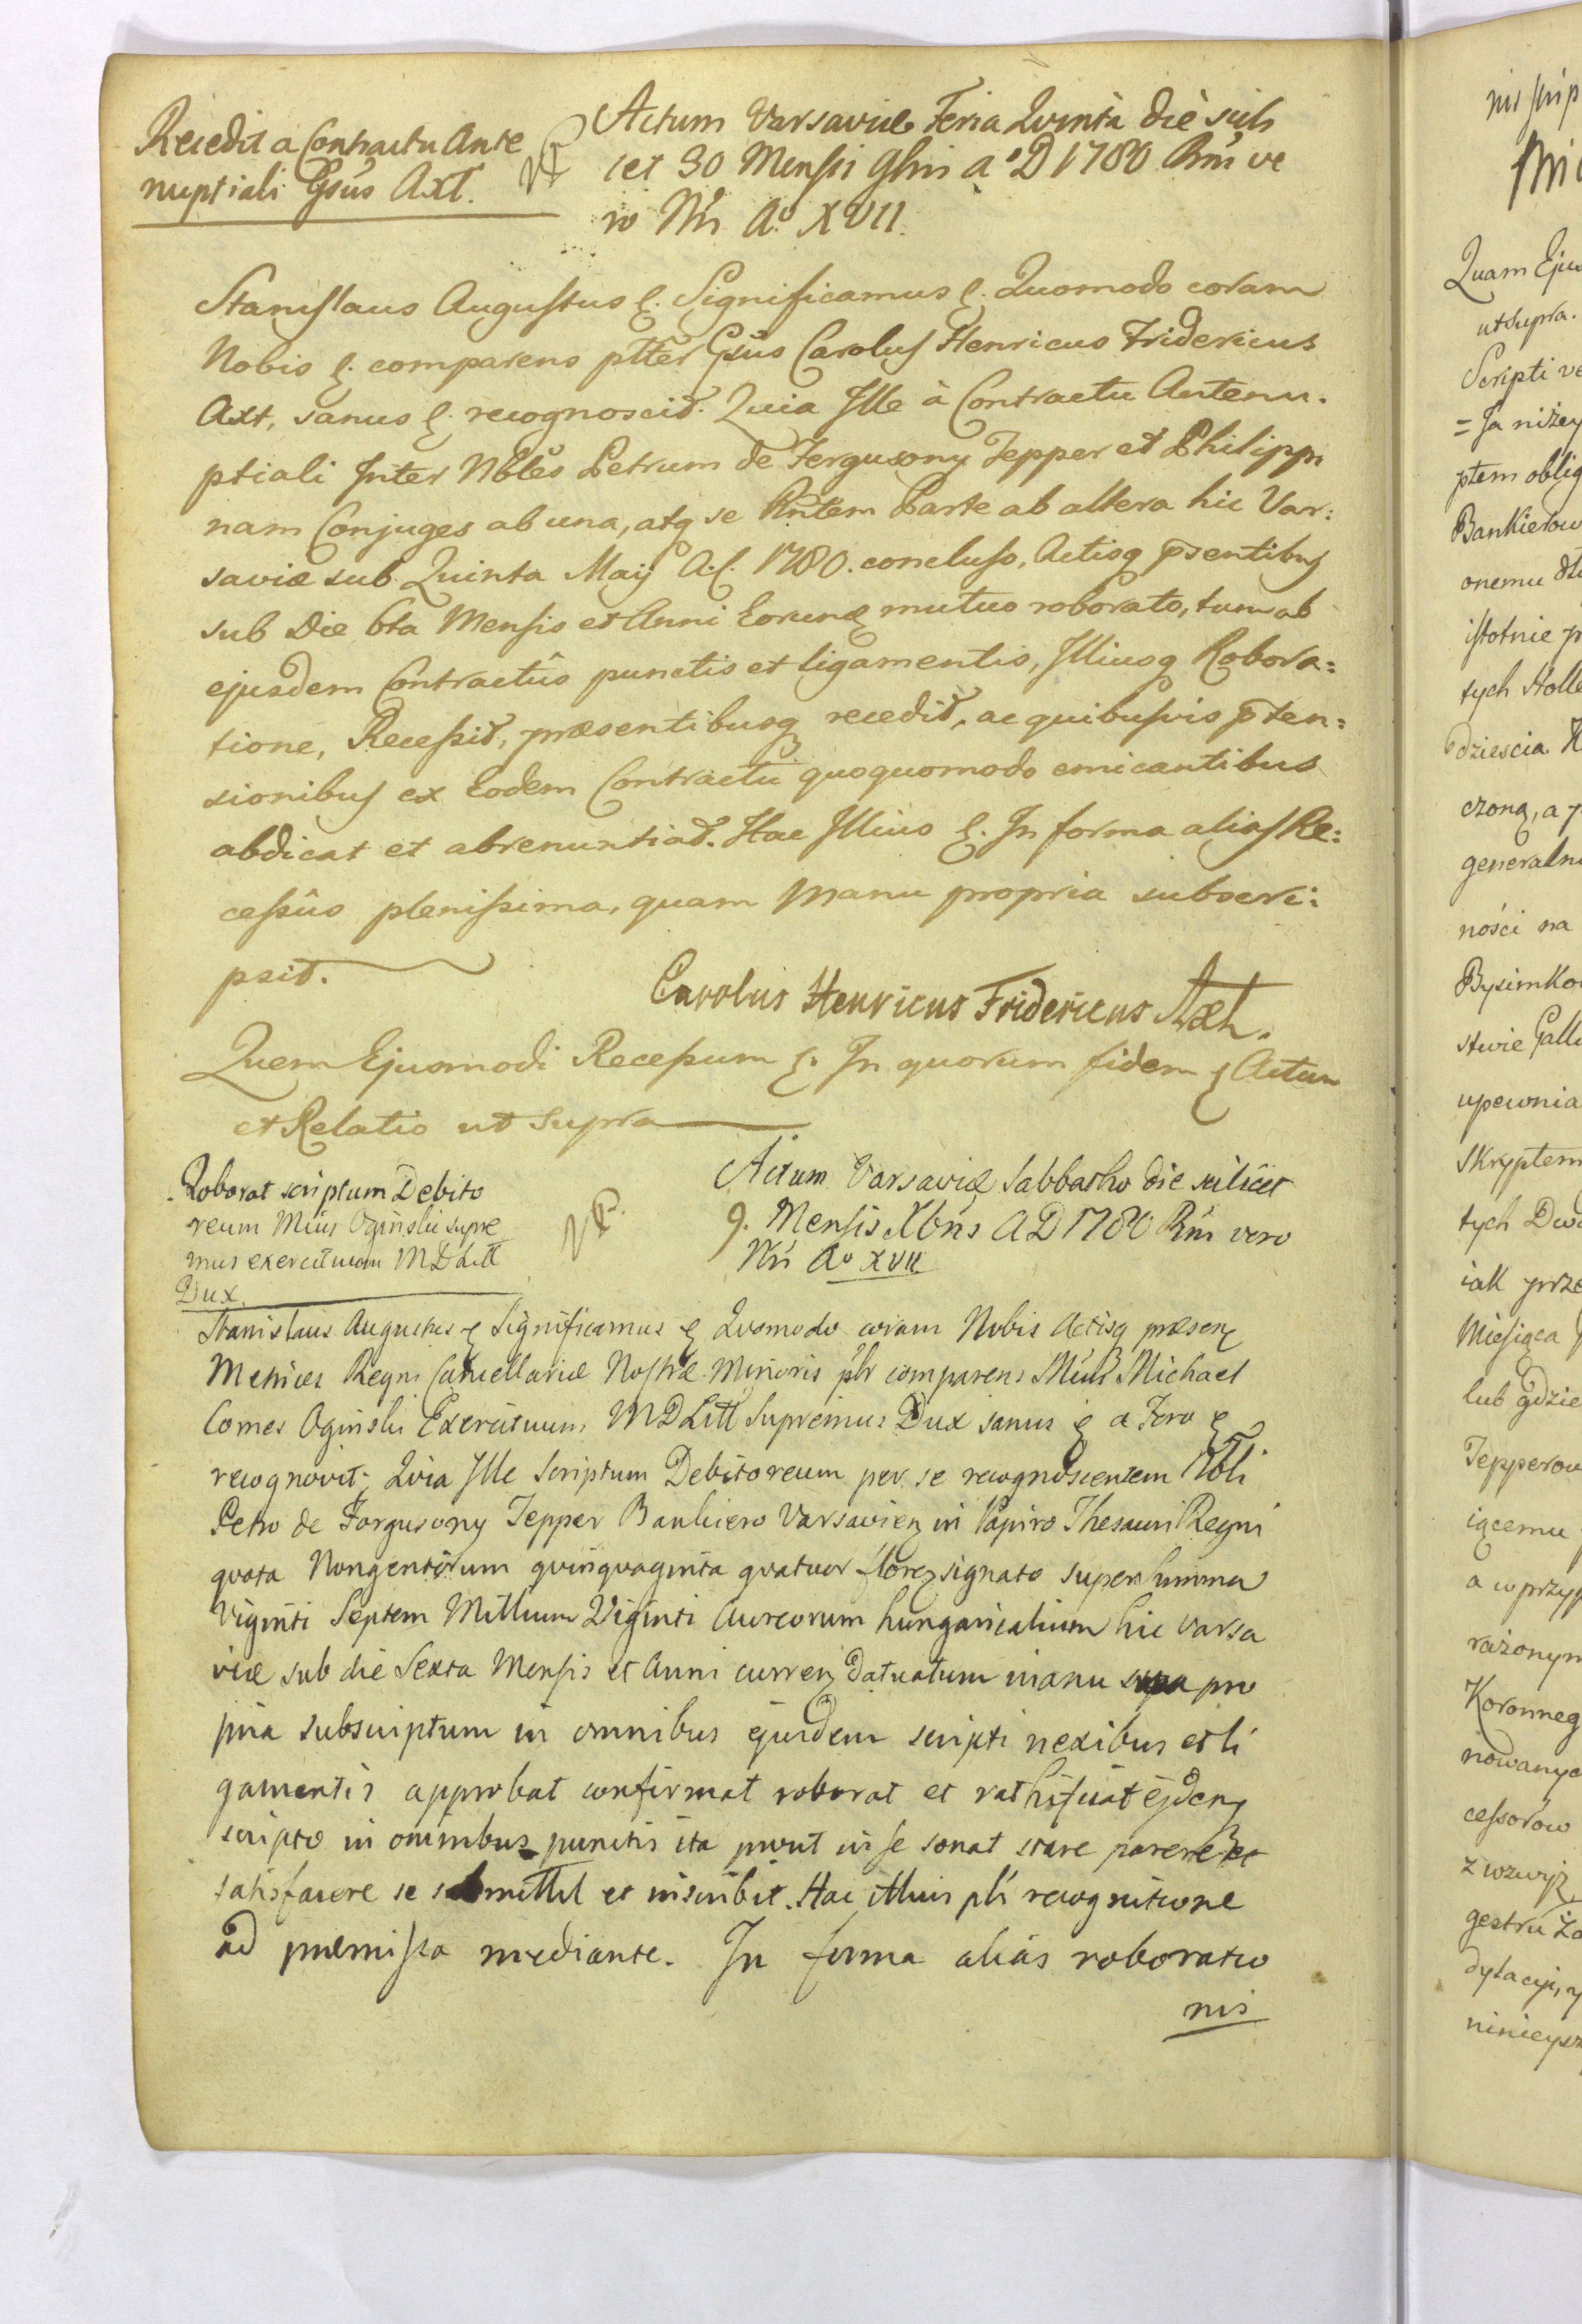 Recedit a Contractu Ante
nuptiali Gsus Axt.
Actum Varsaviæ Feria Quinta die scili
cet 30 Mensis 9bris a° D 1780 Rni ve
ro Nri A° XVII.
Stanislaus Augustus &. Significamus &. Quomodo coram
Nobis &. comparens pltter Gsus Carolus Henricus Fridericus
Axt, sanus &. recognoscit. Quia Ille à Contractu Antenu.
ptiali Inter Nbles Petrum de Fergusony Tepper et Philippi
nam Conjuges ab una, atq se Rntem Parte ab altera hic Var:
saviæ sub Quinta Maij A.C. 1780. concluso, Actisq psentibus
sub Die 6ta Mensis et Anni Eorund mutuo roborato, tum ab
ejusdem Contractûs punctis et ligamentis, Illiusq Robora=
tione, Recessit, præsentibusq recedit, ac quibusvis pten=
sionibus ex Eodem Contractu quoquomodo emicantibus
abdicat et abrenuntiat. Hac Illius &. In forma alias Re:
cessûs plenissima, quam Manu propria subscri:
psit.
Carolus Henricus Fridericus Axt.
Quem Ejusmodi Recessum &. In quorum fidem & Actum
et Relatio ut supra
Roborat scriptum Debito
reum Mius Oginski supre
mus exercituum MD Litt
Dux.
Actum Varsaviæ Sabbatho die scilicet
9. Mensis Xbris AD 1780 Rni vero
Nri A° XVII
Stanislaus Augustus & Significamus & Quomodo coram Nobis Actisq præsen
Metrices Regni Cancellariæ Nostræ Minoris plr comparens Illmus Michael
Comes Oginski Exercituum MDLitt Supremus Dux sanus & a Foro &
recognovit. Quia Ille Scriptum Debitoreum per se recognoscentem Nbli
Petro de Forgusony Tepper Bankiero Varsavien in Papiro Thesauri Regni
quota Nongentorum quinquaginta quatuor floren signato super Summa
Viginti Septem Millium Viginti Aureorum hungaricalium hic Varsa
viæ sub die Sexta Mensis et Anni curren datuatum manu sua pro
pria subscriptum in omnibus ejusdem scripti nexibus et li
gamentis approbat confirmat roborat et rathificat ejdem
scripto in omnibus punctis ita prout in se sonat stare parere et
satisfacere se submittit et inscribit. Hac illius pli recognitione
ad præmissa mediante. In forma alias roboratio
nis
Quam Ejus
ut supra.
Scripti ve
= Ja niżey
ptem oblig
Bankierow
onemu
istotnie p
tych Holle
dziescia
czoną, a p
generaln
ności na
stwie Gall
upewnia
Skryptem
tych Dwo
iak prze
Miesiąca
lub gdzie
Tepperow
iącemu
a w przyp
rażonym
Koronneg
nowanyc
cessorow
ninieysz